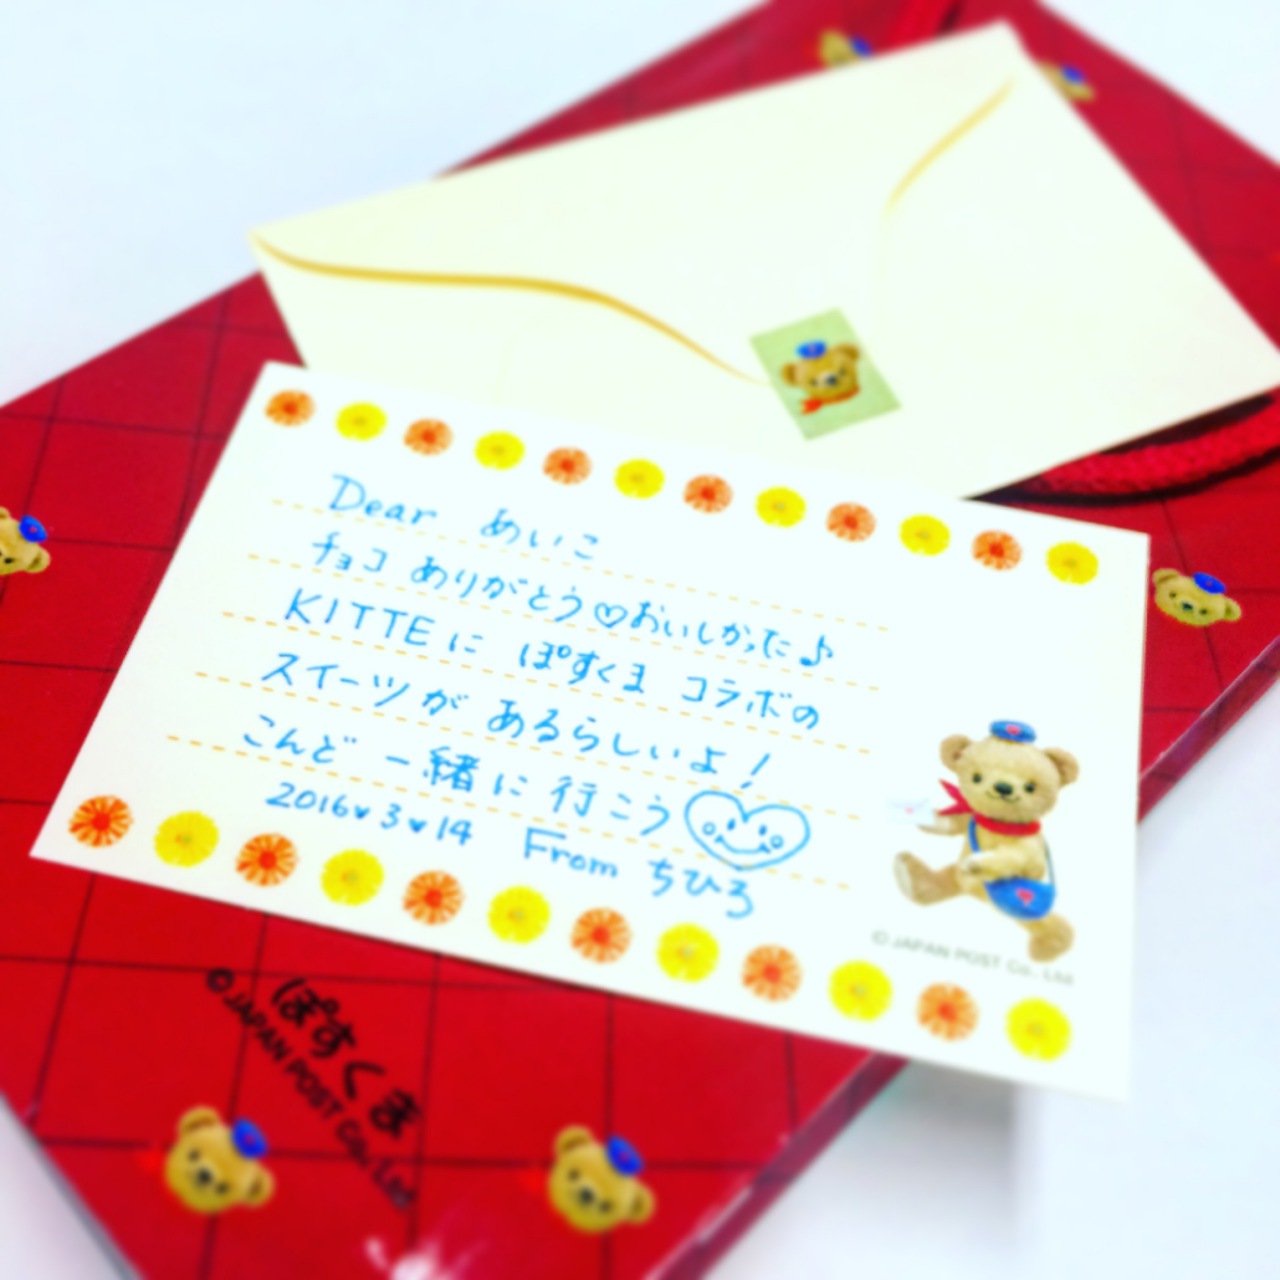 Dear めいこ
チョコ ありがとう♡おいしかった♪
KITTEに ぽすくま コラボの
スイーツが あるらしいよ!
こんど 一緒に 行こう
2016♥3♥14 From ちひろ
© JAPAN POST Co., Ltd
ぽすくま
© JAPAN POST Co., Ltd